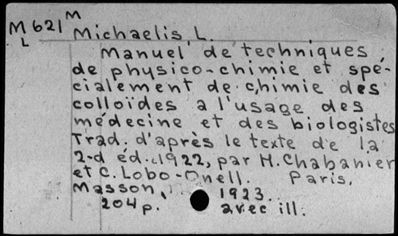 M 621 M
L
Michaelis, L.
Manuel de techniques
de physico-chimie et spé-
cialement de chimie des
colloïdes a l'usage des
médecine et des biologistes
Trad. d'après le texte de la
2-d éd. 1922, par H. Chabanier
et C. Lobo-Onell. Paris.
Masson, 1923.
204 p. avec ill.